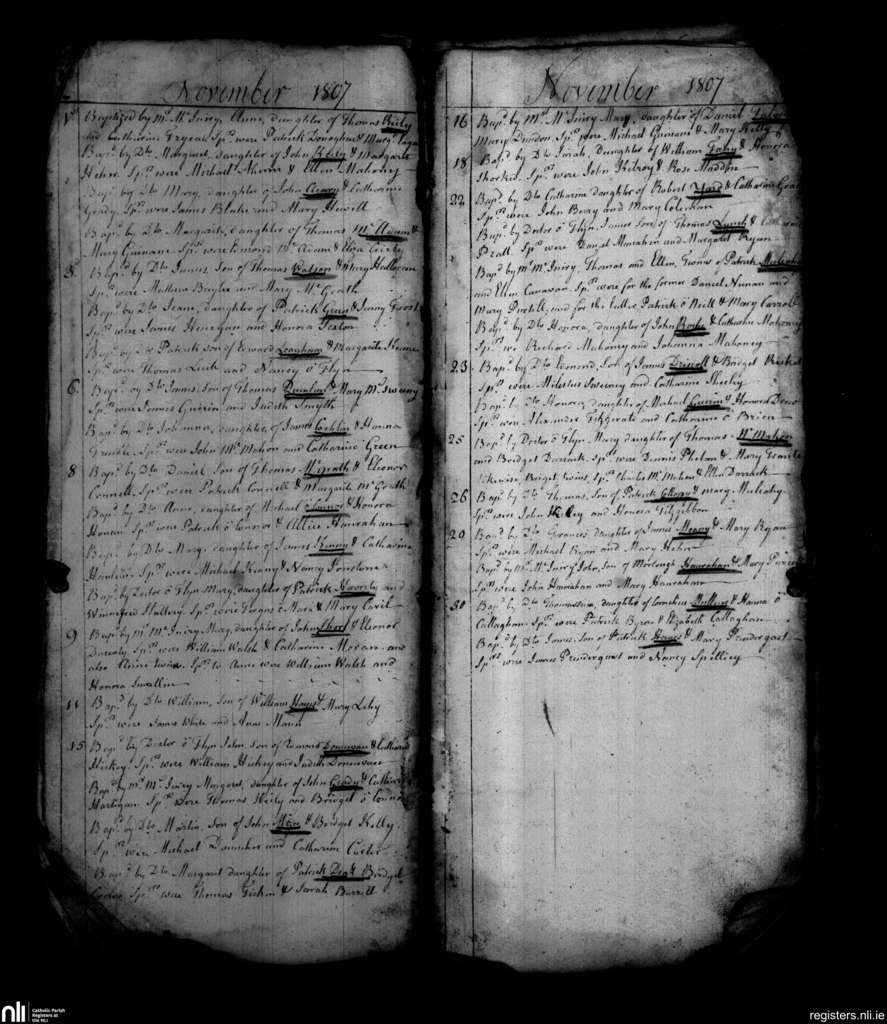 November 1807
1 Baptized by Mr. McIniry, Anne, daughter of Thomas Reily
and Catharine Sprs. were Patrick Donoghue & Margt.
Bapd. by Do. Margaret, daughter of John Reily & Margaret
Hehir. Sprs. were Michael Ahern & Ellen Mahony
Bapd. by Do. Mary, daughter of John Cleary & Catharine
Grady, Sprs. were James Blake and Mary Hewitt
Bapd. by Do. Margarite, daughter of Thomas Mc. Adam &
Mary Guinane Sprs. were Edmond Mc. Adam & Eliza
3 Bapd. by Do. James, Son of Thomas Watson & Mary Halloran
Sprs. were Mathew Baylee and Mary Mc. Grath
Bapd. by Do. Jeane, daughter of Patrick Green & Jenny Frost
Sprs. were James Henegan and Honora Sexton
Bapd. by Do. Patrick son of Edward & Margarite Keane
Sprs. were Thomas and Nancy o Flyn
6 Bapd. by Do. James, Son of Thomas & Mary Mc. Sweeny
Sprs. were James Guerin and Judith Smyth
Bapd. by Do. Johanna, daughter, of James & Hanna
Sprs. were John Mc. Mahon and Catharine Green
8 Bapd. by Do. Daniel, Son of Thomas Mcgrath & Eleonor
Connell. Sprs. were Patrick Connell & Margarite Mc. Grath
Bapd. by Do. Anne, daughter of Michael o Connor & Honora
Honan Sprs. were Patrick o Connor & Allice Hanrahan
Bapd. by Do. Marg. daughter of James Kenny & Catharine
Sprs. were Michael Keany & Nancy
Bapd. by Doctor o Flyn Mary, daughter of Patrick and
Winnefred Sprs. were Fergus o Mara & Mary
9 Bapd. by Mr. McIniry Mary, daughter of John Short & Eleonor
Sprs. were William Walsh & Catharine Moran and
also twin Sprs. to Anne were William Walsh and
Honora
11 Bapd. by Do. William, Son of William Hayes & Mary
Sprs. were James White and Anne Mann
15 Bapd. by Doctor o Flyn John, son of Donnovan & Catharine
Hickey. Sprs. were William Hickey and Judith Donnovan
Bapd. by Mr. McIniry Margaret, daughter of John Grady & Catharine
Hartigan. Sprs. were Thomas and Bridget o Connor
Bapd. by Do. Martin, Son of John & Bridget Kelly
Sprs. were Michael and Catharine Carter
Bapd. by Do. Margaret daughter of Patrick & Bridget
Sprs. were Thomas & Sarah Barrett
November 1807
16 Bapd. by Mr. McIniry Mary, daughter of Daniel
Mary Dundon. Sprs. were Michael Guinane & Mary Kelly
18 Bapd. by Do. Sarah, daughter of William Fahy & Honora
Sprs. were John Kilroy & Rose Madden
22 Bapd. by Do. Catharine daughter of Robert Yard & Catharine
Sprs. were John Beary and Mary Coleman
Bapd. by Doctor o Flyn, James Son of Thomas Lynch &
Sprs. were Daniel Monahen and Margaret Ryan
Bapd. by Mr. McIniry, Thomas and Ellen, twins of Patrick
and Ellen Canavan. Sprs. were for the former Daniel Nunan and
Mary Purtell; and for the latter Patrick o Neill & Mary Carroll
Bapd. by Do. Honora, daughter of John & Catharine Mahoney
Sprs. we Richard Mahoney and Johanna Mahoney
23 Bapd. by Do. Edmond, Son of James & Bridget
Sprs. were Sweeney and Catharine Sheehy
Bapd. by Do. Honora, daughter of Michael Guerin & Honora Drew
Sprs. were Alexander Fitzgerald and Catharine o Brien
25 Bapd. by Doctor o Flyn. Mary daughter of Thomas Mc. Mahon
and Bridget Darrack. Sprs. were Dennis Phelan & Mary
Likewise, Bridget, twins, Sprs. Charles Mc. Mahon & Ellen Darrack
26 Bapd. by Do. Thomas, Son of Patrick & mary Mulcahy
Sprs. were John and Honora Fitzgibbon
29 Bapd. by Do. Frances, daughter of James Meany & Mary Ryan
Sprs. were Michael Ryan and Mary Hehir
Bapd. by Mr. McIniry John, son of Morlough Hanrahan & Mary
Sprs. were John Hanrahan and Mary Hanrahan
30 Bapd. by Do. Thomassina, daughter of Cornelius & Hanna o
Callaghan. Sprs. were Patrick Byrne & Elizabeth Callaghan
Bapd. by Do. James, Son of Patrick Hayes & Mary Prendergast
Sprs. were James Prendergast and Nancy
nli
Catholic Parish
Registers at
the NLI
registers.nli.ie